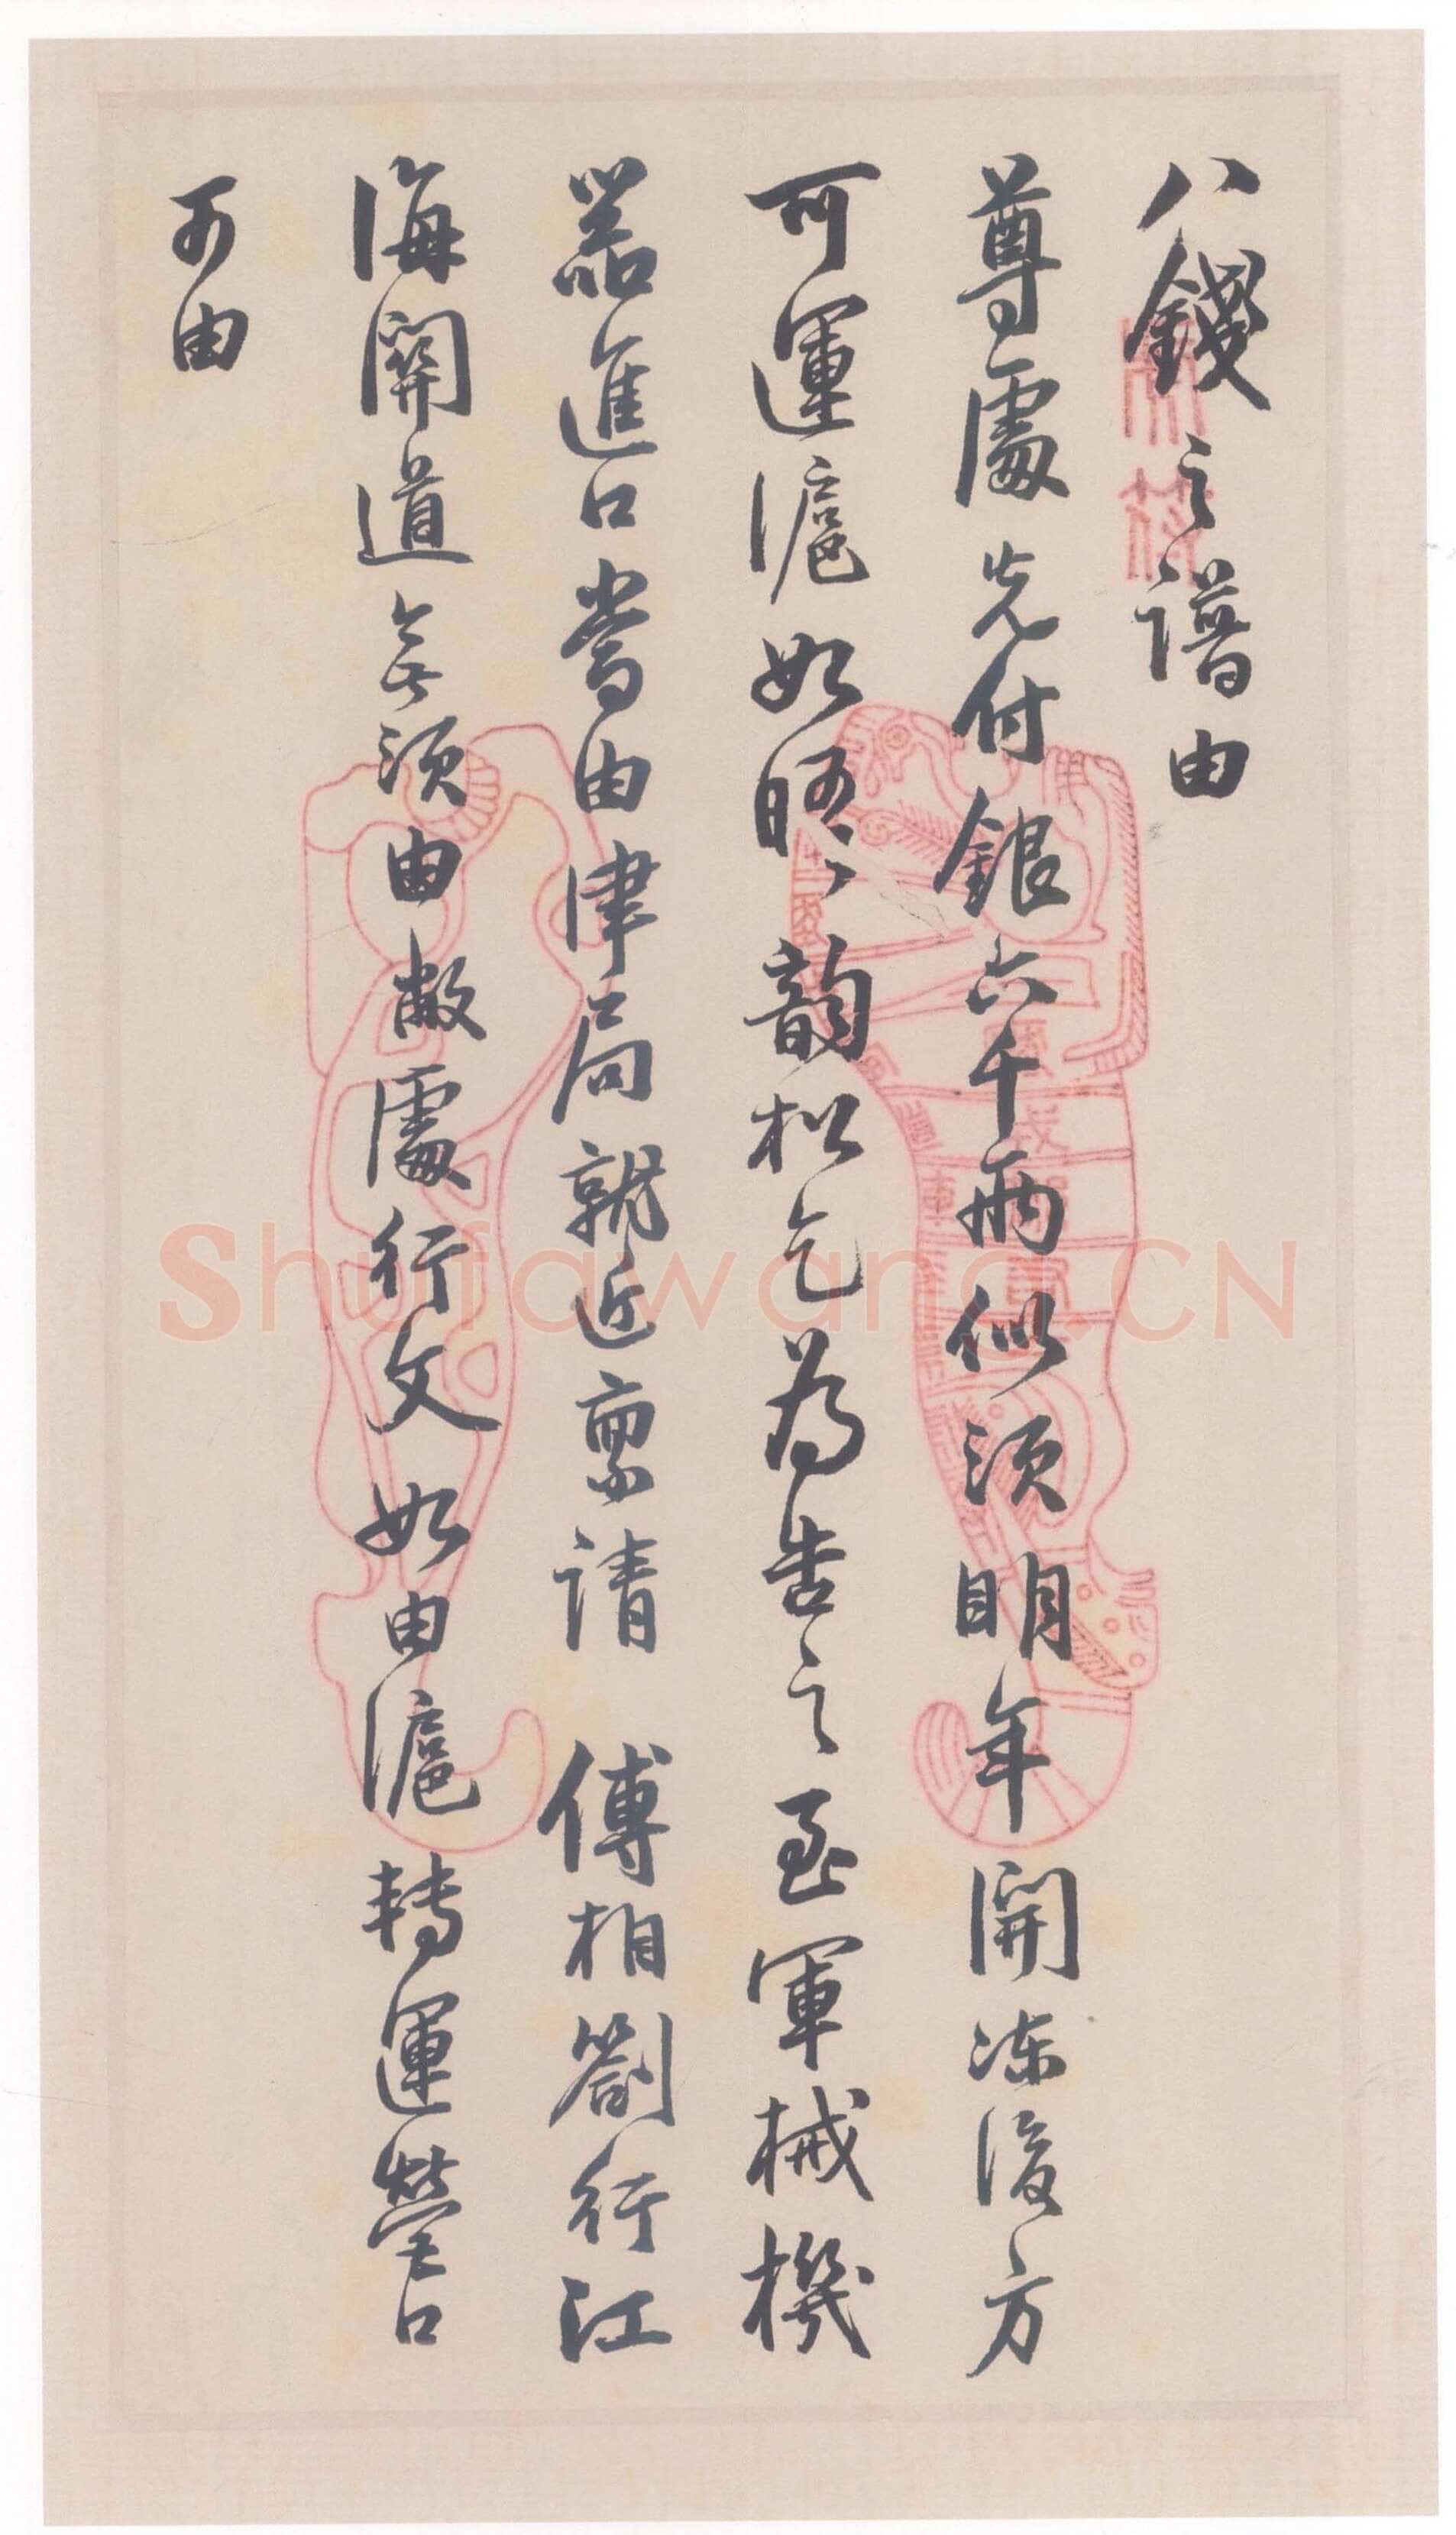 八錢之譜由
尊處先付銀六千兩似須明年開凍後方
可運滬如晤韻松乞為告之至軍械機
器進口當由津局就近稟請 傅相劄行江
海關道無須由敝處行文如由滬轉運營口
可由
Shufawang.CN